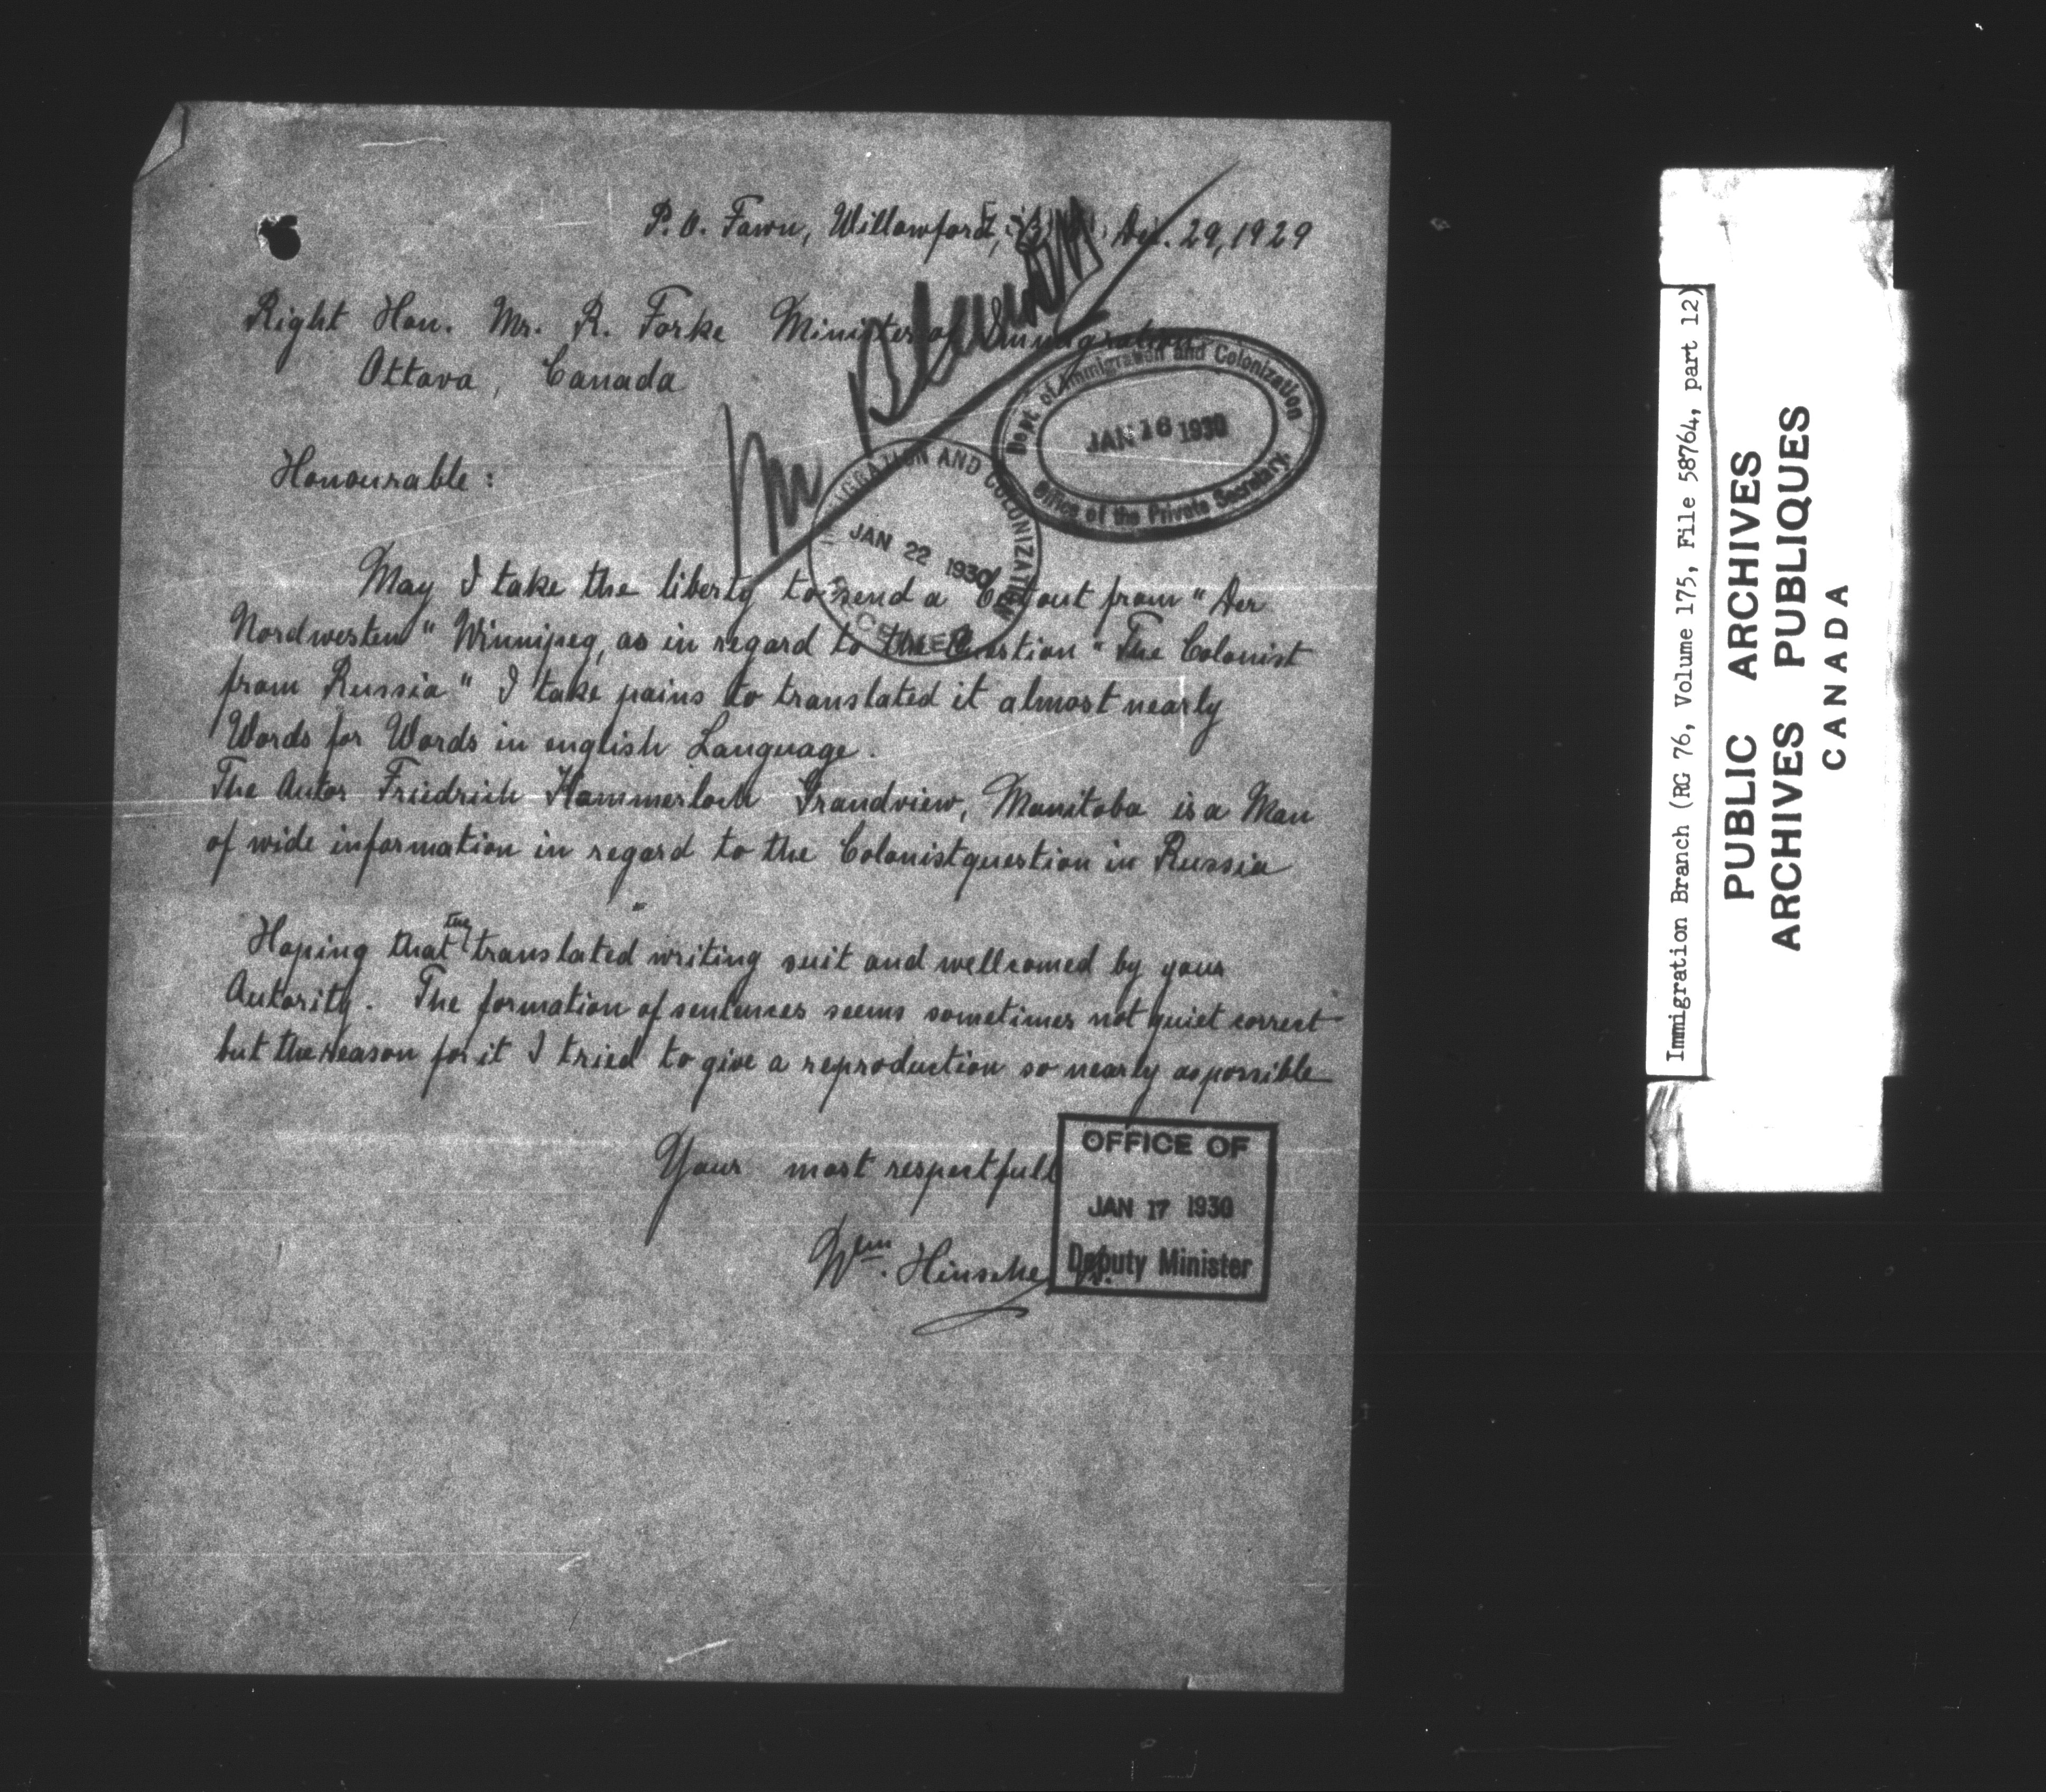 P. O. Fawn, Willowford, Dec. 29, 1929
Right Hon. Mr. R. Forke Minister of Immigration
Ottava, Canada
Mr Blewett
Dept. of Immigration and Colonization
JAN 16 1930
Office of the Private Secretary.
Honourable:
IMMIGRATION AND COLONIZATION
JAN 22 1930
May I take the liberty to send a out from "Der
Nordwesten" Winnipeg, as in regard to the Question "The Colonist
from Russia" I take pains to translated it almost nearly
Words for Words in english Language.
The Autor Friedrich Hammerloch Grandview, Manitoba is a Man
of wide information in regard to the Colonistquestion in Russia
Hoping that the translated writing suit and wellcomed by your
Autority. The formation of sentences seems sometimes not quiet correct
but the reason for it I tried to give a reproduction so nearly as possible
Your most respectfull
Wm. Hinsche
OFFICE OF
JAN 17 1930
Deputy Minister
Immigration Branch (RG 76, Volume 175, File 58764, part 12)
PUBLIC ARCHIVES
ARCHIVES PUBLIQUES
CANADA